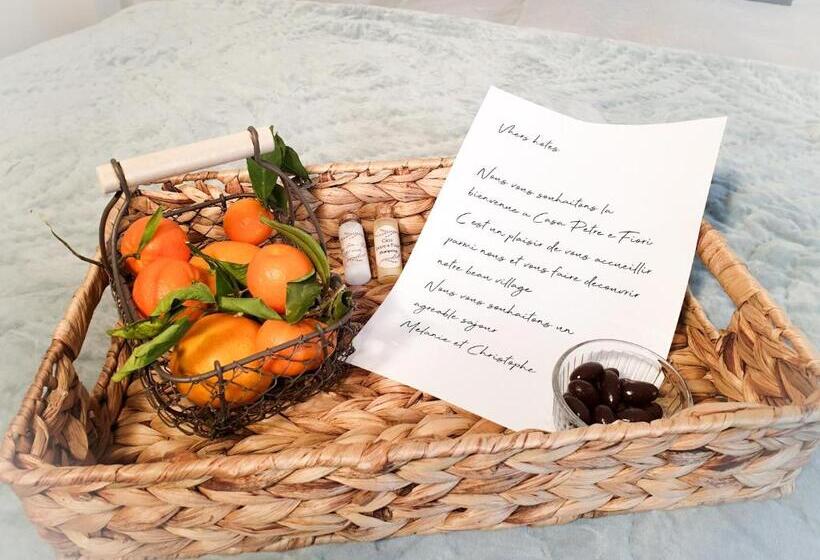 Chers hotes
Nous vous souhaitons la
bienvenue a Casa Petre e Fiori
C'est un plaisir de vous accueillir
parmi nous et vous faire decouvrir
notre beau village
Nous vous souhaitons un
agreable sejour
Melanie et Christophe